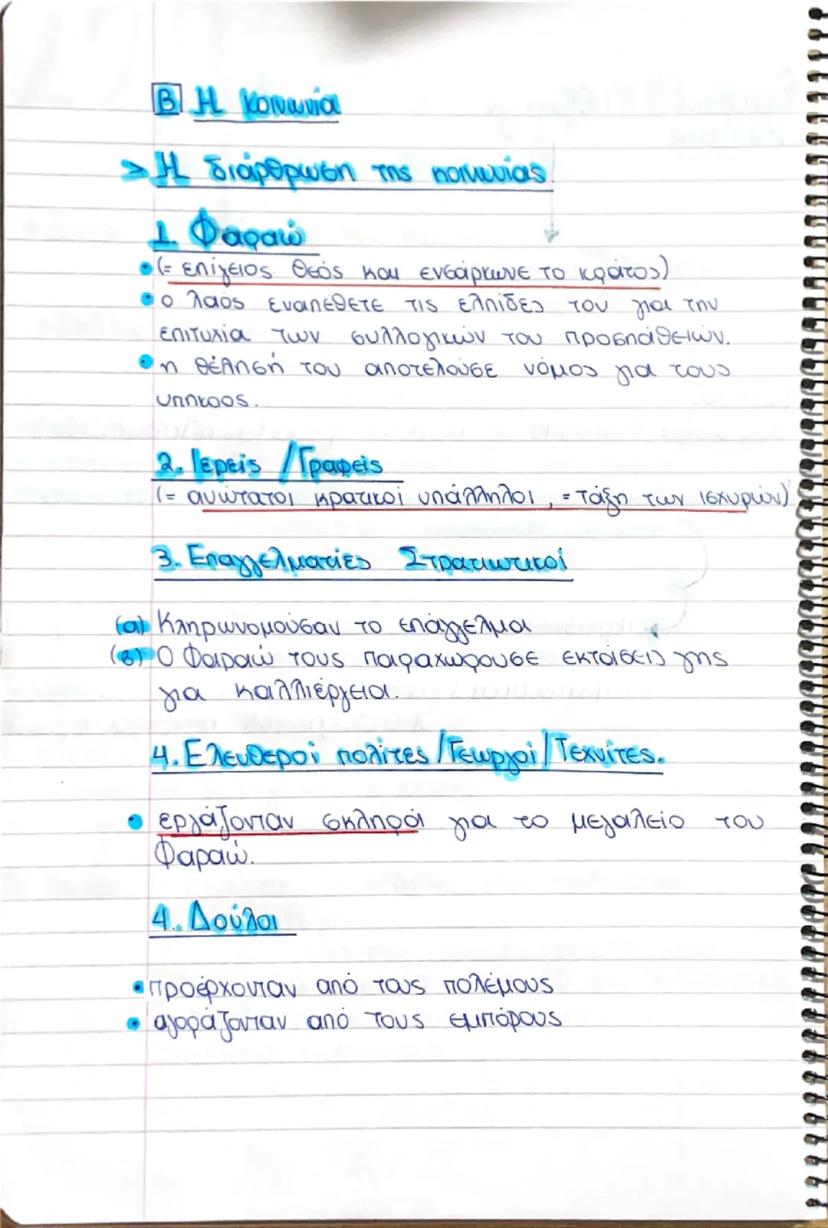 Β Η κοινωνία
> Η διάρθρωση της κοινωνίας
1. Φαραώ
• (= επίγειος θεός και ενσάρκωνε το κράτος)
• ο λαός εναπέθετε τις ελπίδες του για την
επιτυχία των συλλογικών του προσπάθειών.
• η θέλησή του αποτελούσε νόμος για τους
υπηκοος.
2. Ιερείς /Γραφείς
(= ανώτατοι κρατικοί υπάλληλοι, = τάξη των ισχυρών)
3. Επαγγελματίες Στρατιωτικοί
(α) Κληρωνομούσαν το επάγγελμα
(β) Ο Φαραώ τους παραχωρουσε εκτάσεις γης
για καλλιέργεια.
4. Ελευθεροί πολίτες/Γεωργοί/Τεχνίτες.
• εργάζονταν σκληρά για το μεγαλείο του
Φαραώ.
4. Δούλοι
• προέρχονταν από τους πολέμους
• αγοράζονταν από τους εμπόρους